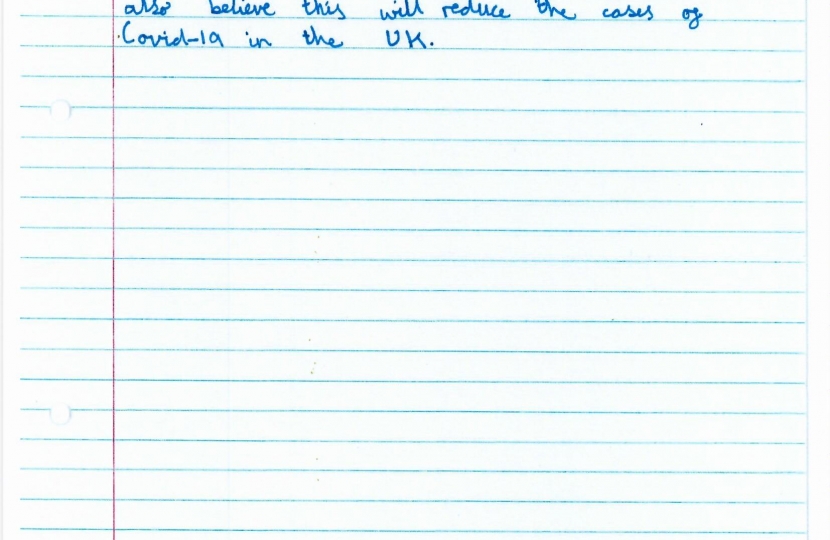 also believe this will reduce the cases of
Covid-19 in the UK.